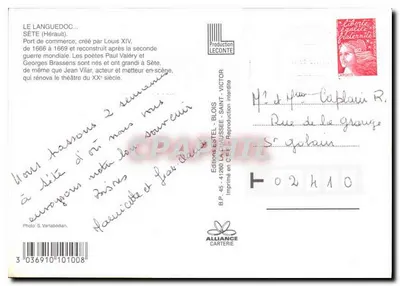 LE LANGUEDOC...
SÈTE (Hérault).
Port de commerce, créé par Louis XIV,
de 1666 à 1669 et reconstruit après la seconde
guerre mondiale. Les poètes Paul Valéry et
Georges Brassens sont nés et ont grandi à Sète,
de même que Jean Vilar, acteur et metteur en-scène,
qui rénova le théâtre du XXe siècle.
Nous passons 2 semaines
à Sète d'où nous vous
envoyons notre bon souvenir
Bises
et Jean
Photo: S.
3 036910 101008
Production
LECONTE
Editions ESTEL - BLOIS
B.P. 45 - 41260 LA CHAUSSÉE - SAINT - VICTOR
Imprimé en C.E.E. Reproduction interdite
ALLIANCE
CARTERIE
Liberté
Egalité
Fraternité
Mr et Mme Caplain R.
Rue de la Grange
St Gobain
T 02410